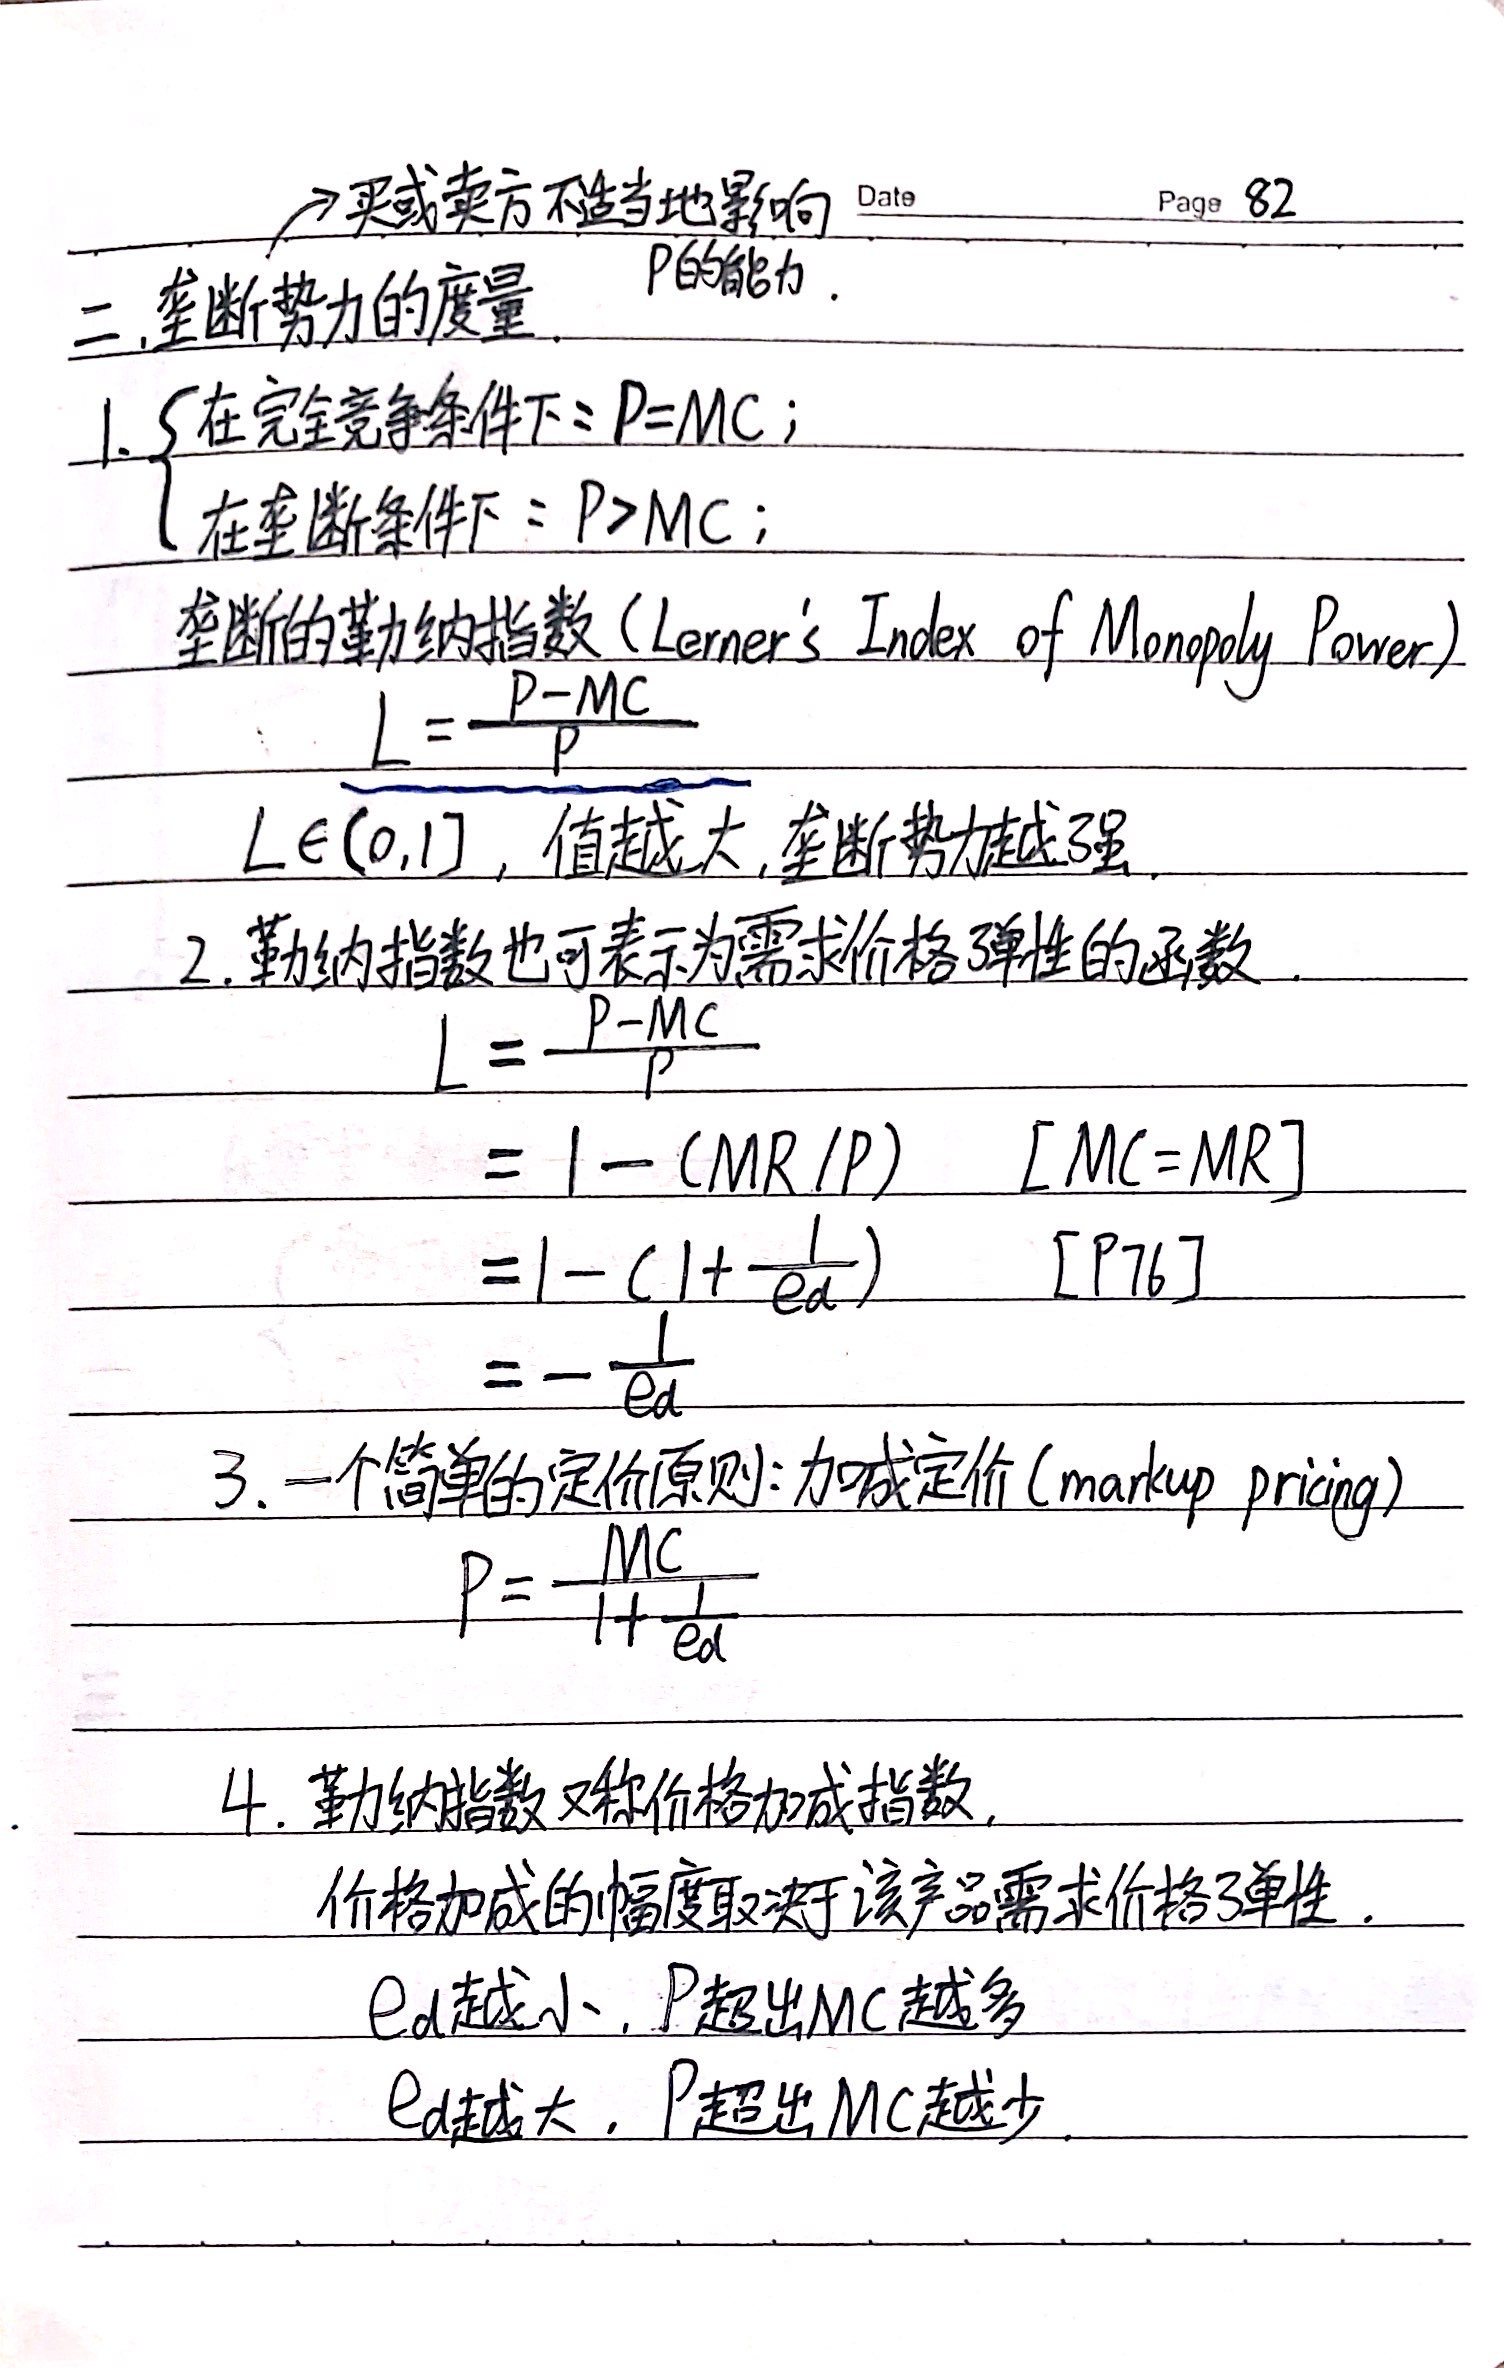 Date Page 82
买或卖方不适当地影响
P的能力.
二.垄断势力的度量.
1. { 在完全竞争条件下: P=MC;
在垄断条件下: P>MC;
垄断的勒纳指数(Lerner's Index of Monopoly Power)
L = \frac{P-MC}{P}
L∈(0,1], 值越大,垄断势力越强.
2.勒纳指数也可表示为需求价格弹性的函数.
L = \frac{P-MC}{P}
= 1-(MR/P) [MC=MR]
= 1-(1+\frac{1}{ed}) [P76]
= -\frac{1}{ed}
3.一个简单的定价原则:加成定价(markup pricing)
P = \frac{MC}{1+\frac{1}{ed}}
4.勒纳指数又称价格加成指数,
价格加成的幅度取决于该产品需求价格弹性.
ed越小, P超出MC越多
ed越大, P超出MC越少.